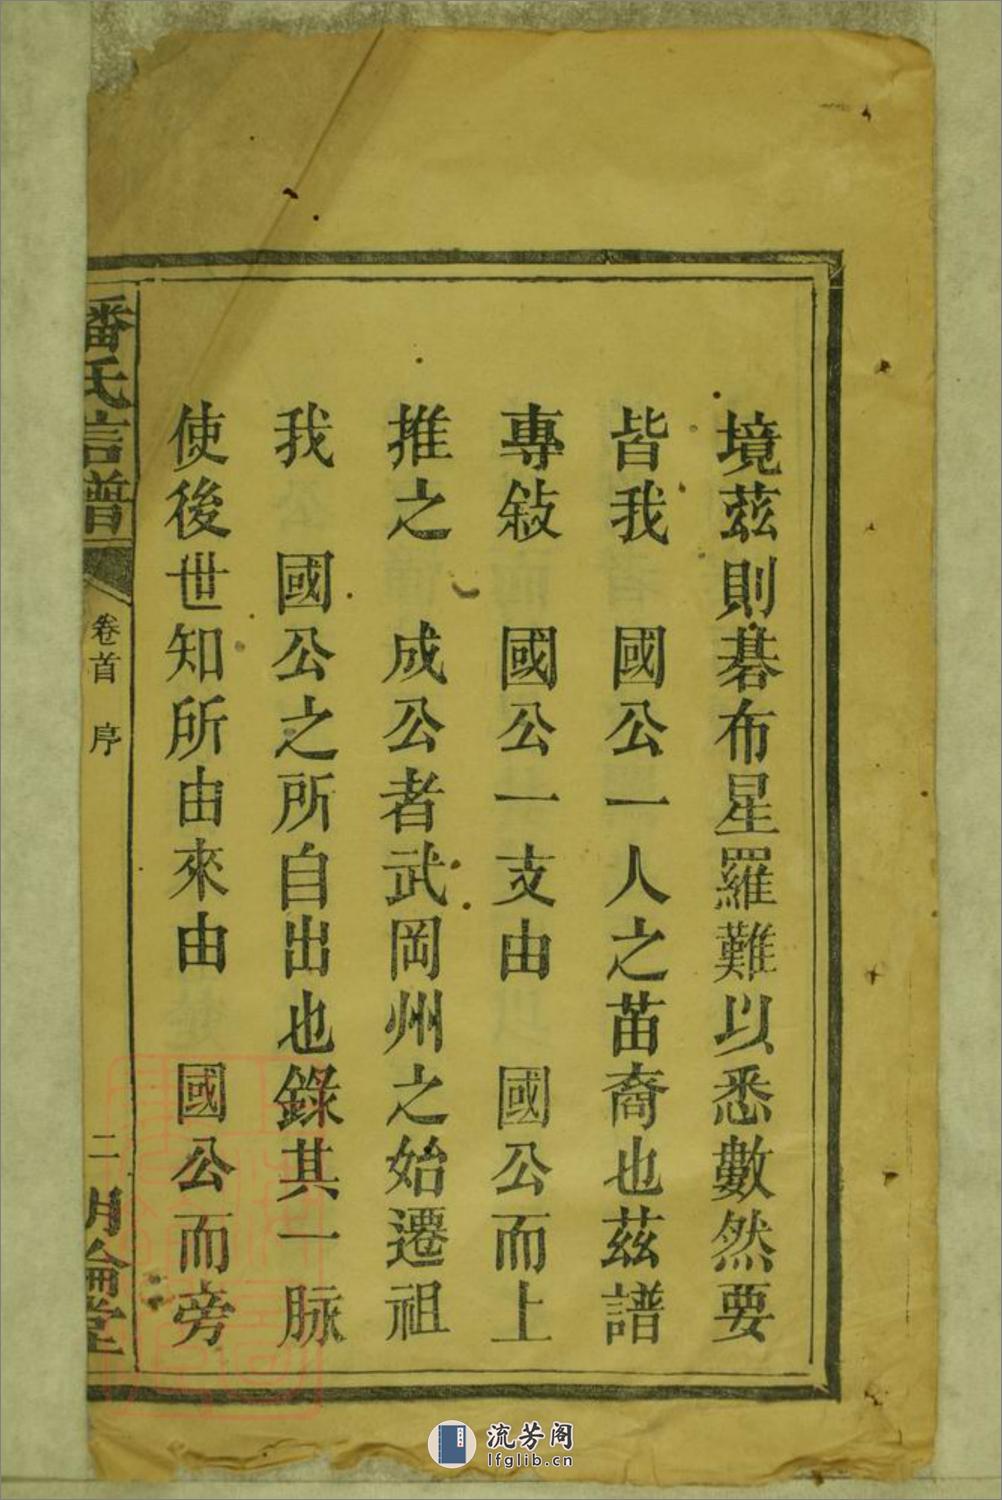 境茲則碁布星羅難以悉數然要
皆我　國公一人之苗裔也茲譜
專敍　國公一支由　國公而上
推之　成公者武岡州之始遷祖
我　國公之所自出也錄其一脉
使後世知所由來由　國公而旁
潘氏信譜
卷首　序
二
明倫堂
流芳阁
lfglib.cn